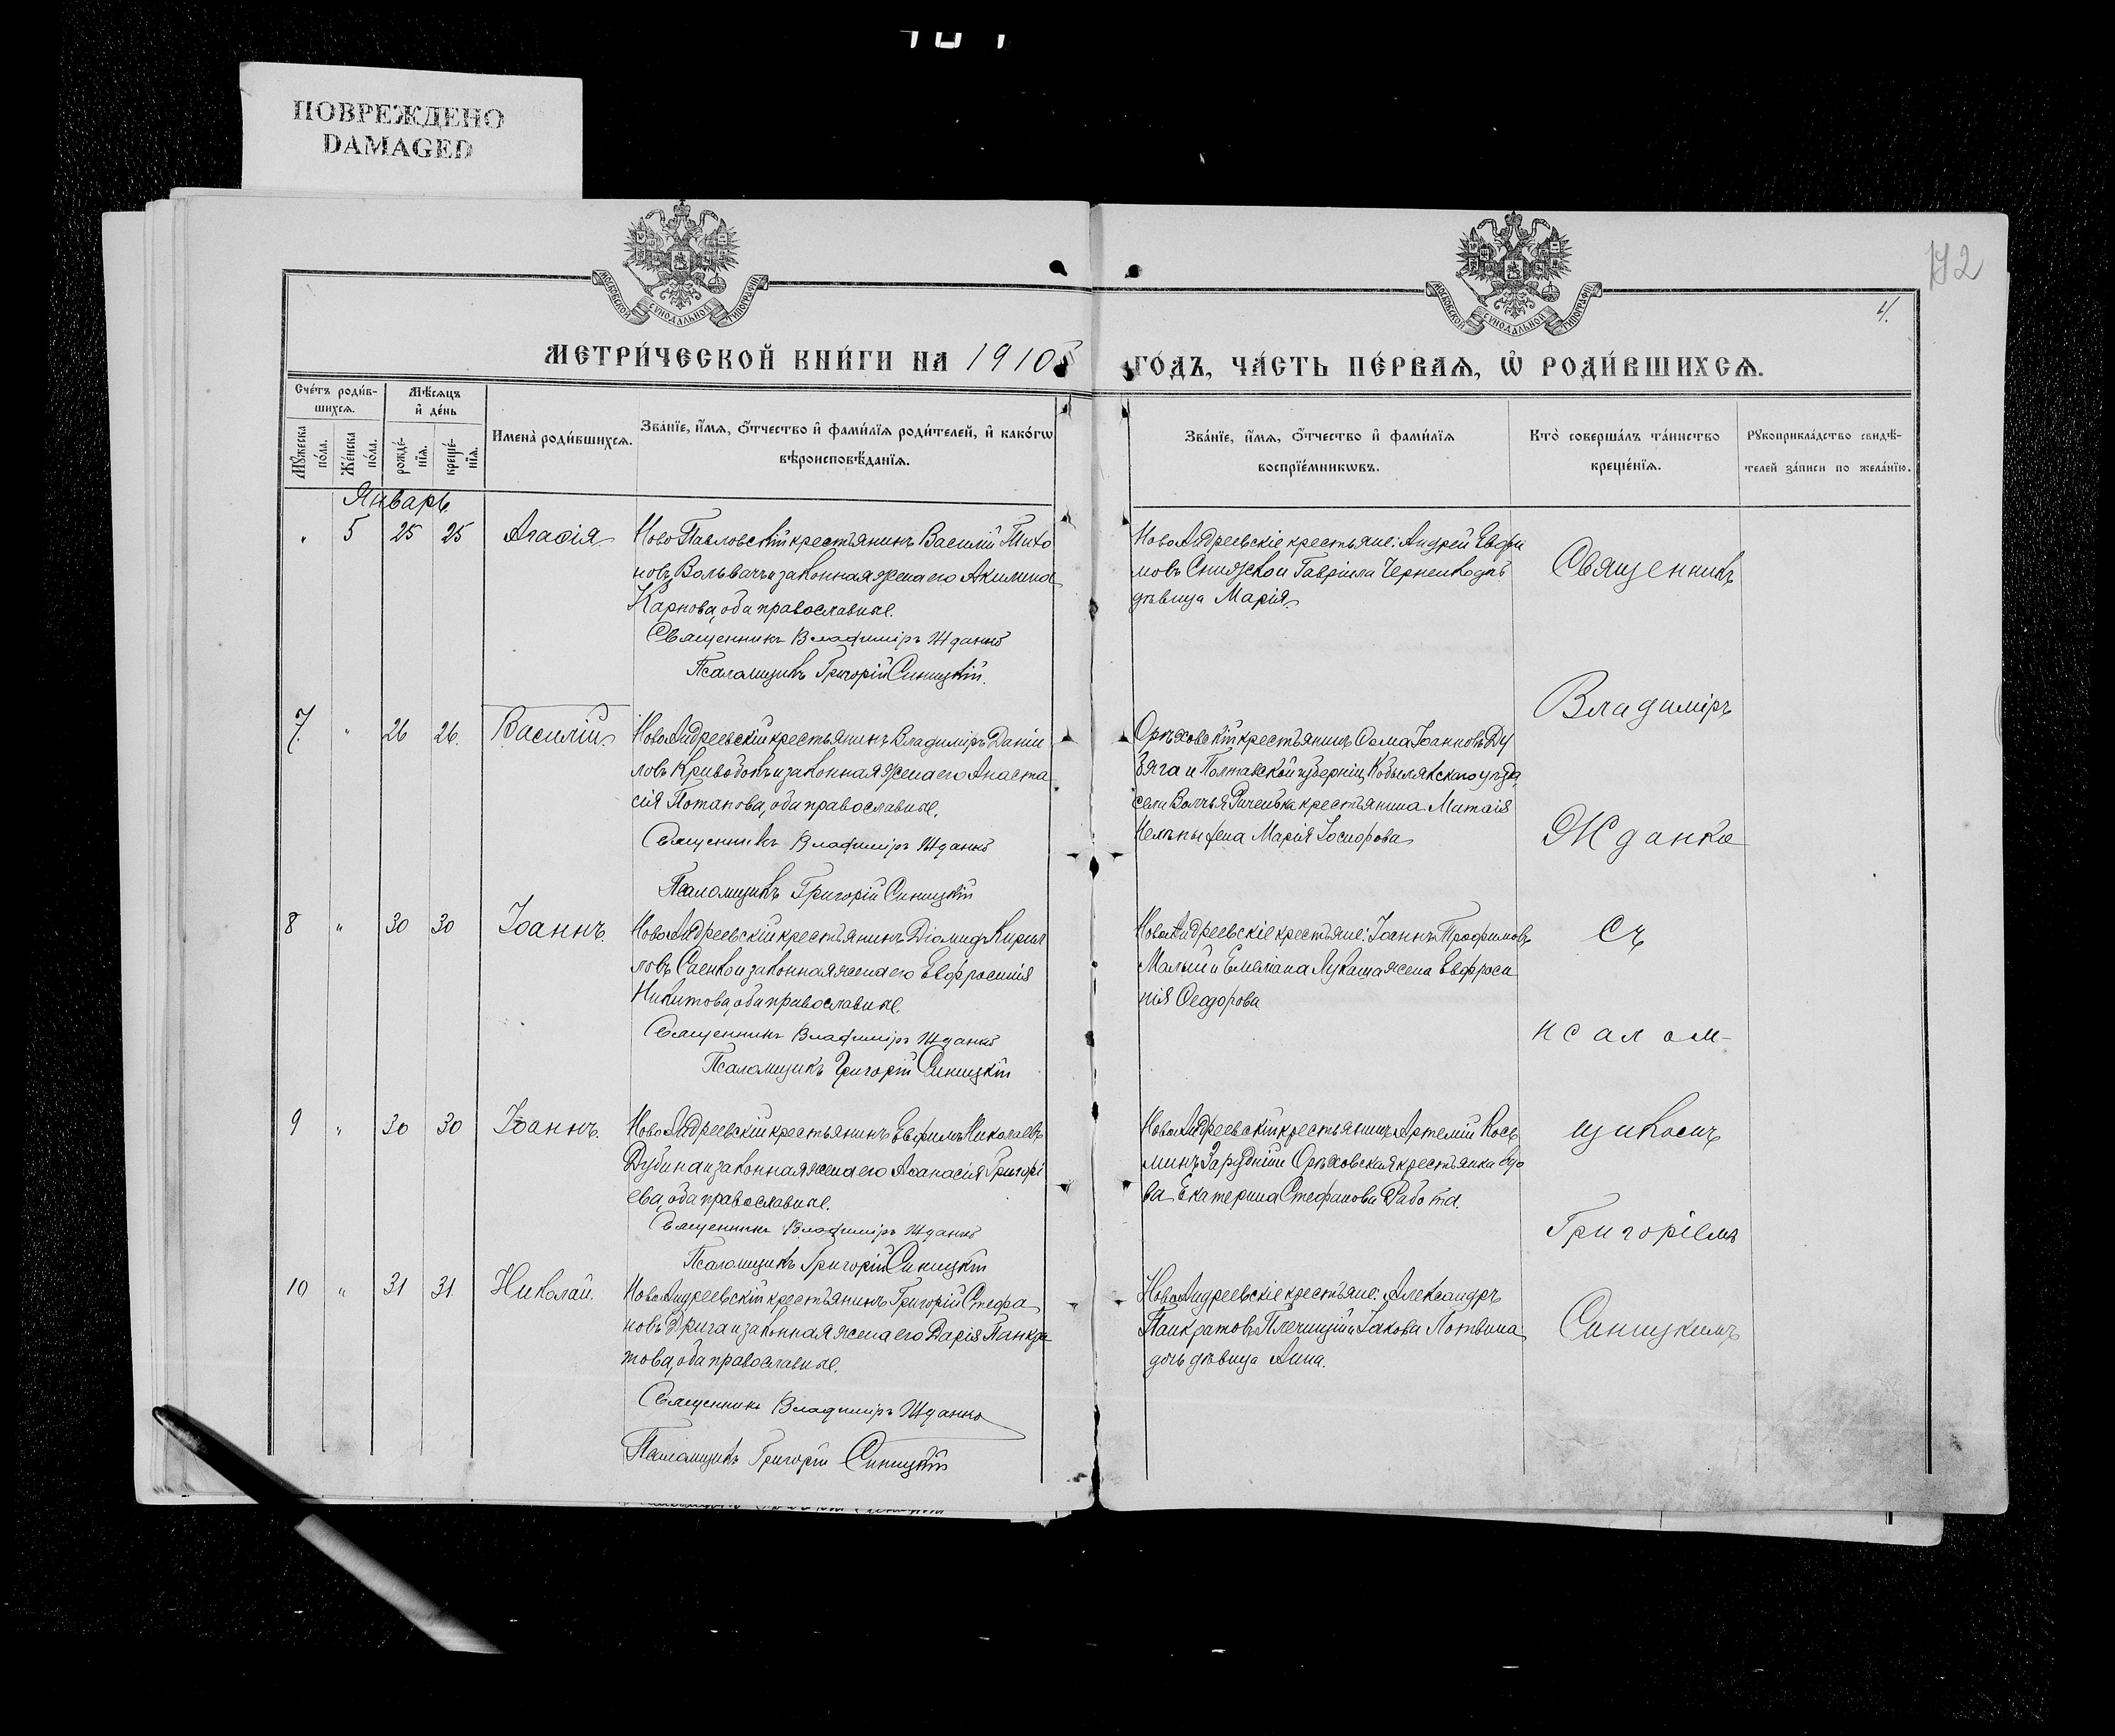 ПОВРЕЖДЕНО
DAMAGED
172
4.
МОСКОВСКОЙ СУНОДАЛЬНОЙ ТИПОГРАФІИ
МОСКОВСКОЙ СУНОДАЛЬНОЙ ТИПОГРАФІИ
МЕТРИ́ЧЕСКОЙ КНИ́ГИ НА 1910 ГО́ДЪ, ЧА́СТЬ ПЕ́РВАѦ, Ѡ҆ РОДИ́ВШИХСѦ.
Сче́тъ роди́в-
шихсѧ.
Мѣ́сѧцъ
и҆ де́нь
Мꙋ́жеска
по́ла.
Же́нска
по́ла.
рожде́-
нїѧ.
креще́-
нїѧ.
Имена̀ роди́вшихсѧ.
Зва́нїе, и҆́мѧ, ѻ҆́тчество и҆ фами́лїѧ роди́телей, и҆ како́гѡ
вѣроисповѣ́данїѧ.
Зва́нїе, и҆́мѧ, ѻ҆́тчество и҆ фами́лїѧ
воспрїе́мникѡвъ.
Кто̀ соверша́лъ та́инство
креще́нїѧ.
Рꙋкоприкла́дство свидѣ́-
телей за́писи по жела́нїю.
Январь
" 5 25 25 Агаѳія
НовоПавловскій крестьянинъ Василій Тихо
новъ Вольвачъ и законная жена его Акилина
Карпова, оба православные.
Священникъ Владиміръ Жданко
Псаломщикъ Григорій Синицкій.
НовоАндреевскіе крестьяне: Андрей Евфи
мовъ и Гавріила Черненко дочь
дѣвица Марія.
7 " 26 26. Василій.
НовоАндреевскій крестьянинъ Владиміръ Даніи
ловъ Кривобокъ и законная жена его Анаста
сія Потапова, оба православные.
Священникъ Владиміръ Жданко
Псаломщикъ Григорій Синицкій
Орѣховскій крестьянинъ Ѳома Іоанновъ Ду
бяга и Полтавской губерніи, Кобылякскаго уѣзда,
села Волчья Риченька крестьянина Матѳія
жена Марія Іосифова
8 " 30 30 Іоаннъ.
НовоАндреевскій крестьянинъ Діомидъ Кирил
ловъ Саенко и законная жена его Евфросинія
Никитова, оба православные.
Священникъ Владиміръ Жданко
Псаломщикъ Григорій Синицкій
НовоАндреевскіе крестьяне: Іоаннъ Трофимовъ
Малый и Емеліана Лукаша жена Евфроси
нія Ѳеодорова
9 " 30 30 Іоаннъ.
НовоАндреевскій крестьянинъ Евфимъ Николаевъ
Дубина и законная жена его Аѳанасія Григорі
ева, оба православные.
Священникъ Владиміръ Жданко
Псаломщикъ Григорій Синицкій
НовоАндреевскій крестьянинъ Артемій Кось
минъ Зарудній и Орѣховская крестьянка вдо
ва Екатерина Стефанова Работа.
10 " 31 31 Николай.
НовоАндреевскій крестьянинъ Григорій Стефа
новъ Дрига и законная жена его Дарія Панкра
това, оба православные.
Священникъ Владиміръ Жданко
Псаломщикъ Григорій Синицкій
НовоАндреевскіе крестьяне: Александръ
Панкратовъ Плечицій и Іакова Лотвина
дочь дѣвица Анна.
Священникъ
Владиміръ
Жданко
съ
псалом-
щикомъ
Григоріемъ
Синицкимъ